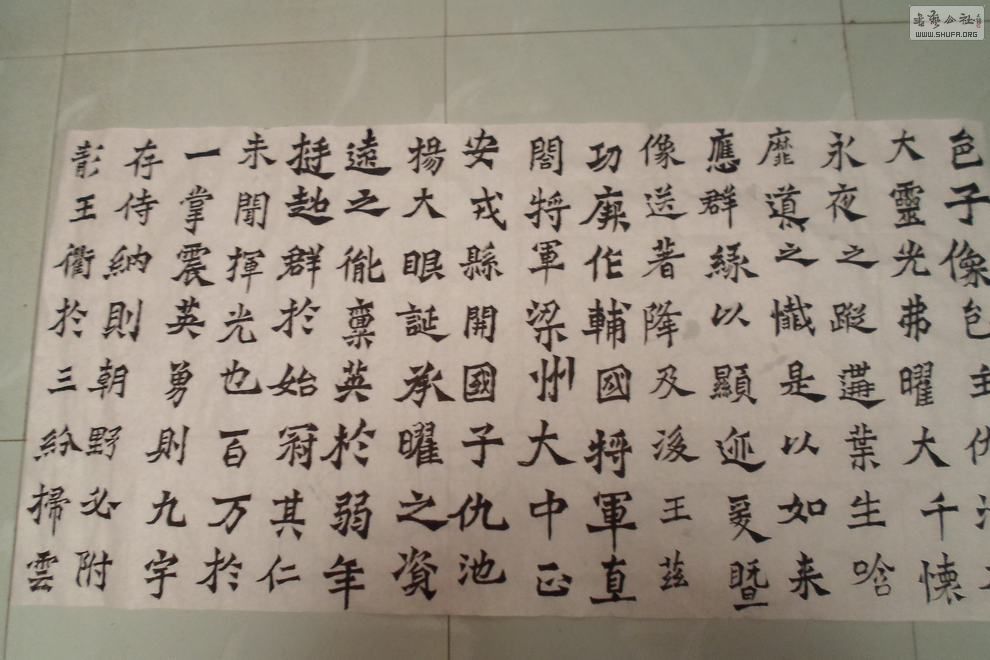 邑子像邑主仇池
大靈光弗曜大千懷
永夜之蹤遘葉生唅
靡道之懺是以如来
應群緣以顯迹爰暨
像送著降及後王茲
功厥作輔國將軍直
閤將軍梁州大中正
安戎縣開國子仇池
揚大眼誕承曜之資
遠之胤稟英於弱年
挺超群於始冠其仁
未聞揮光也百万於
一掌震英勇則九宇
存侍納則朝野必附
王衢於三紛掃雲
書藝公社
WWW.SHUFA.ORG